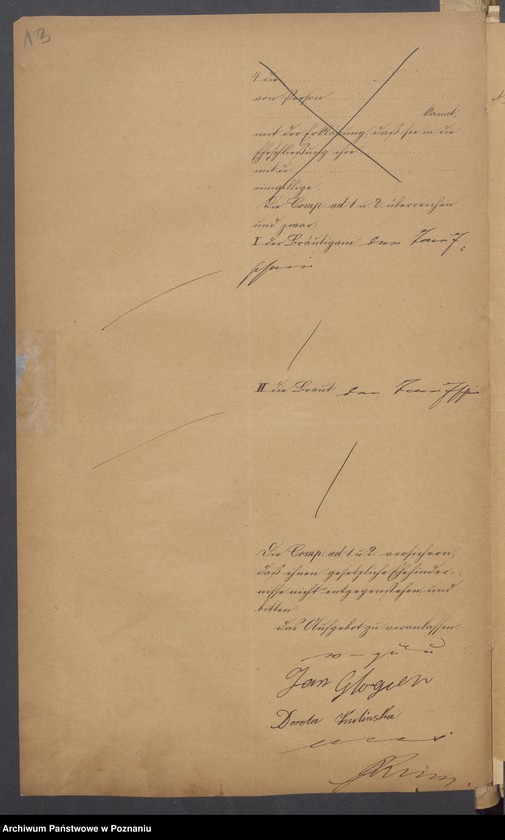 13
4. die
von Person
kannt,
mit der Erklärung, daß sie in die
Eheschließung ihre
mit d
einwillige
Die Comp. ad 1 u. 2. überreichen
und zwar:
I. der Bräutigam den Tauf-
schein
II. die Braut den Taufschein
Die Comp. ad 1 u. 2. versichern,
daß ihnen gesetzliche Ehehinder-
nisse nicht entgegenstehen und
bitten
das Aufgebot zu veranlassen.
v. g. u.
Jan Glogien
Dorota
Archiwum Państwowe w Poznaniu